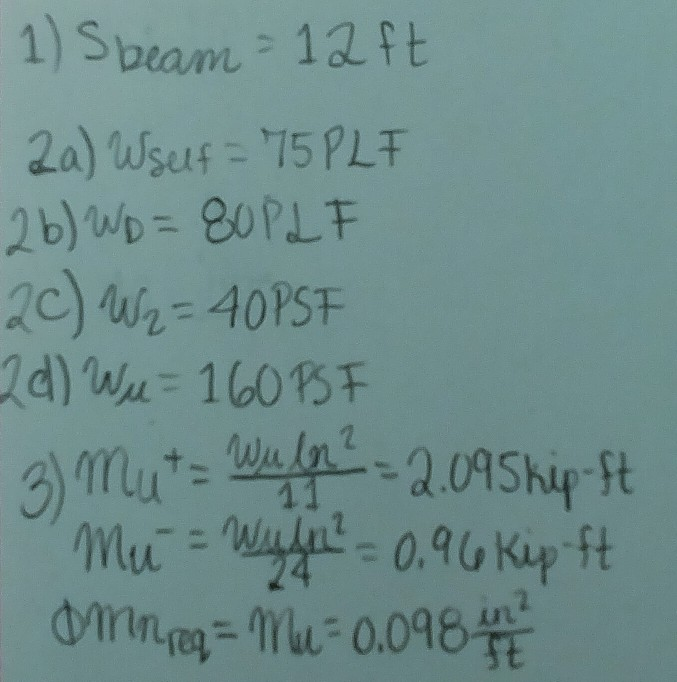 1) Sbeam = 12 ft
2a) Wself = 75 PLF
2b) WD = 80 PLF
2c) W2 = 40 PSF
2d) Wu = 160 PSF
3) Mu⁺ = Wu ln² / 11 = 2.095 kip-ft
Mu⁻ = Wu ln² / 24 = 0.96 kip-ft
ΦMn req = Mu = 0.098 in²/ft